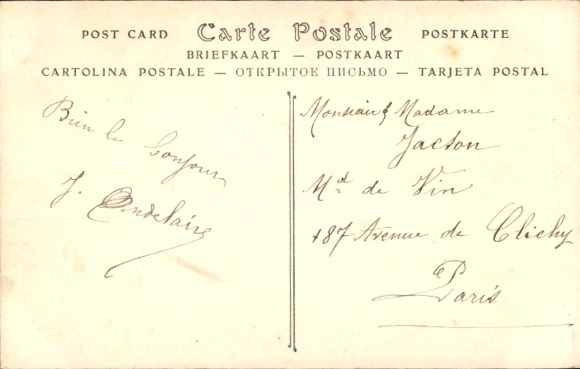 POST CARD Carte Postale POSTKARTE
BRIEFKAART — POSTKAART
CARTOLINA POSTALE — ОТКРЫТОЕ ПИСЬМО — TARJETA POSTAL
Bien le bonjour
J.
Monsieur & Madame
Jacson
Md de Vin
187 Avenue de Clichy
Paris